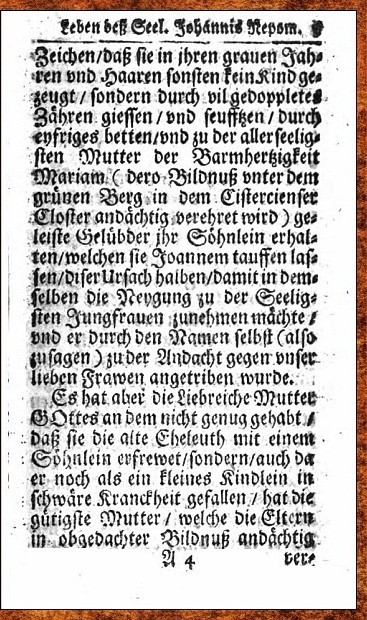 Leben deß Seel. Johannis Nepom.
Zeichen/daß sie in jhren grauen Jah-
ren vnd Haaren sonsten kein Kind ge-
zeugt / sondern durch vil gedoppletes
Zähren giessen / vnd seufftzen / durch
eyfriges betten/vnd zu der allerseelig-
sten Mutter der Barmhertzigkeit
Mariam ( dero Bildnuß vnter dem
grünen Berg in dem Cistercienser
Closter andächtig verehret wird ) ge-
leiste Gelübder jhr Söhnlein erhal-
ten/welchen sie Joannem tauffen las-
sen/diser Ursach halben/damit in dem-
selben die Neygung zu der Seelig-
sten Jungfrauen zunehmen mächte /
vnd er durch den Namen selbst (also
zusagen ) zu der Andacht gegen vnser
lieben Frawen angetriben wurde.
Es hat aber die Liebreiche Mutter
GOttes an dem nicht genug gehabt /
daß sie die alte Eheleuth mit einem
Söhnlein erfrewet/sondern/auch da
er noch als ein kleines Kindlein in
schwäre Kranckheit gefallen / hat die
gütigste Mutter / welche die Eltern
in obgedachter Bildnuß andächtig
A 4 vere-